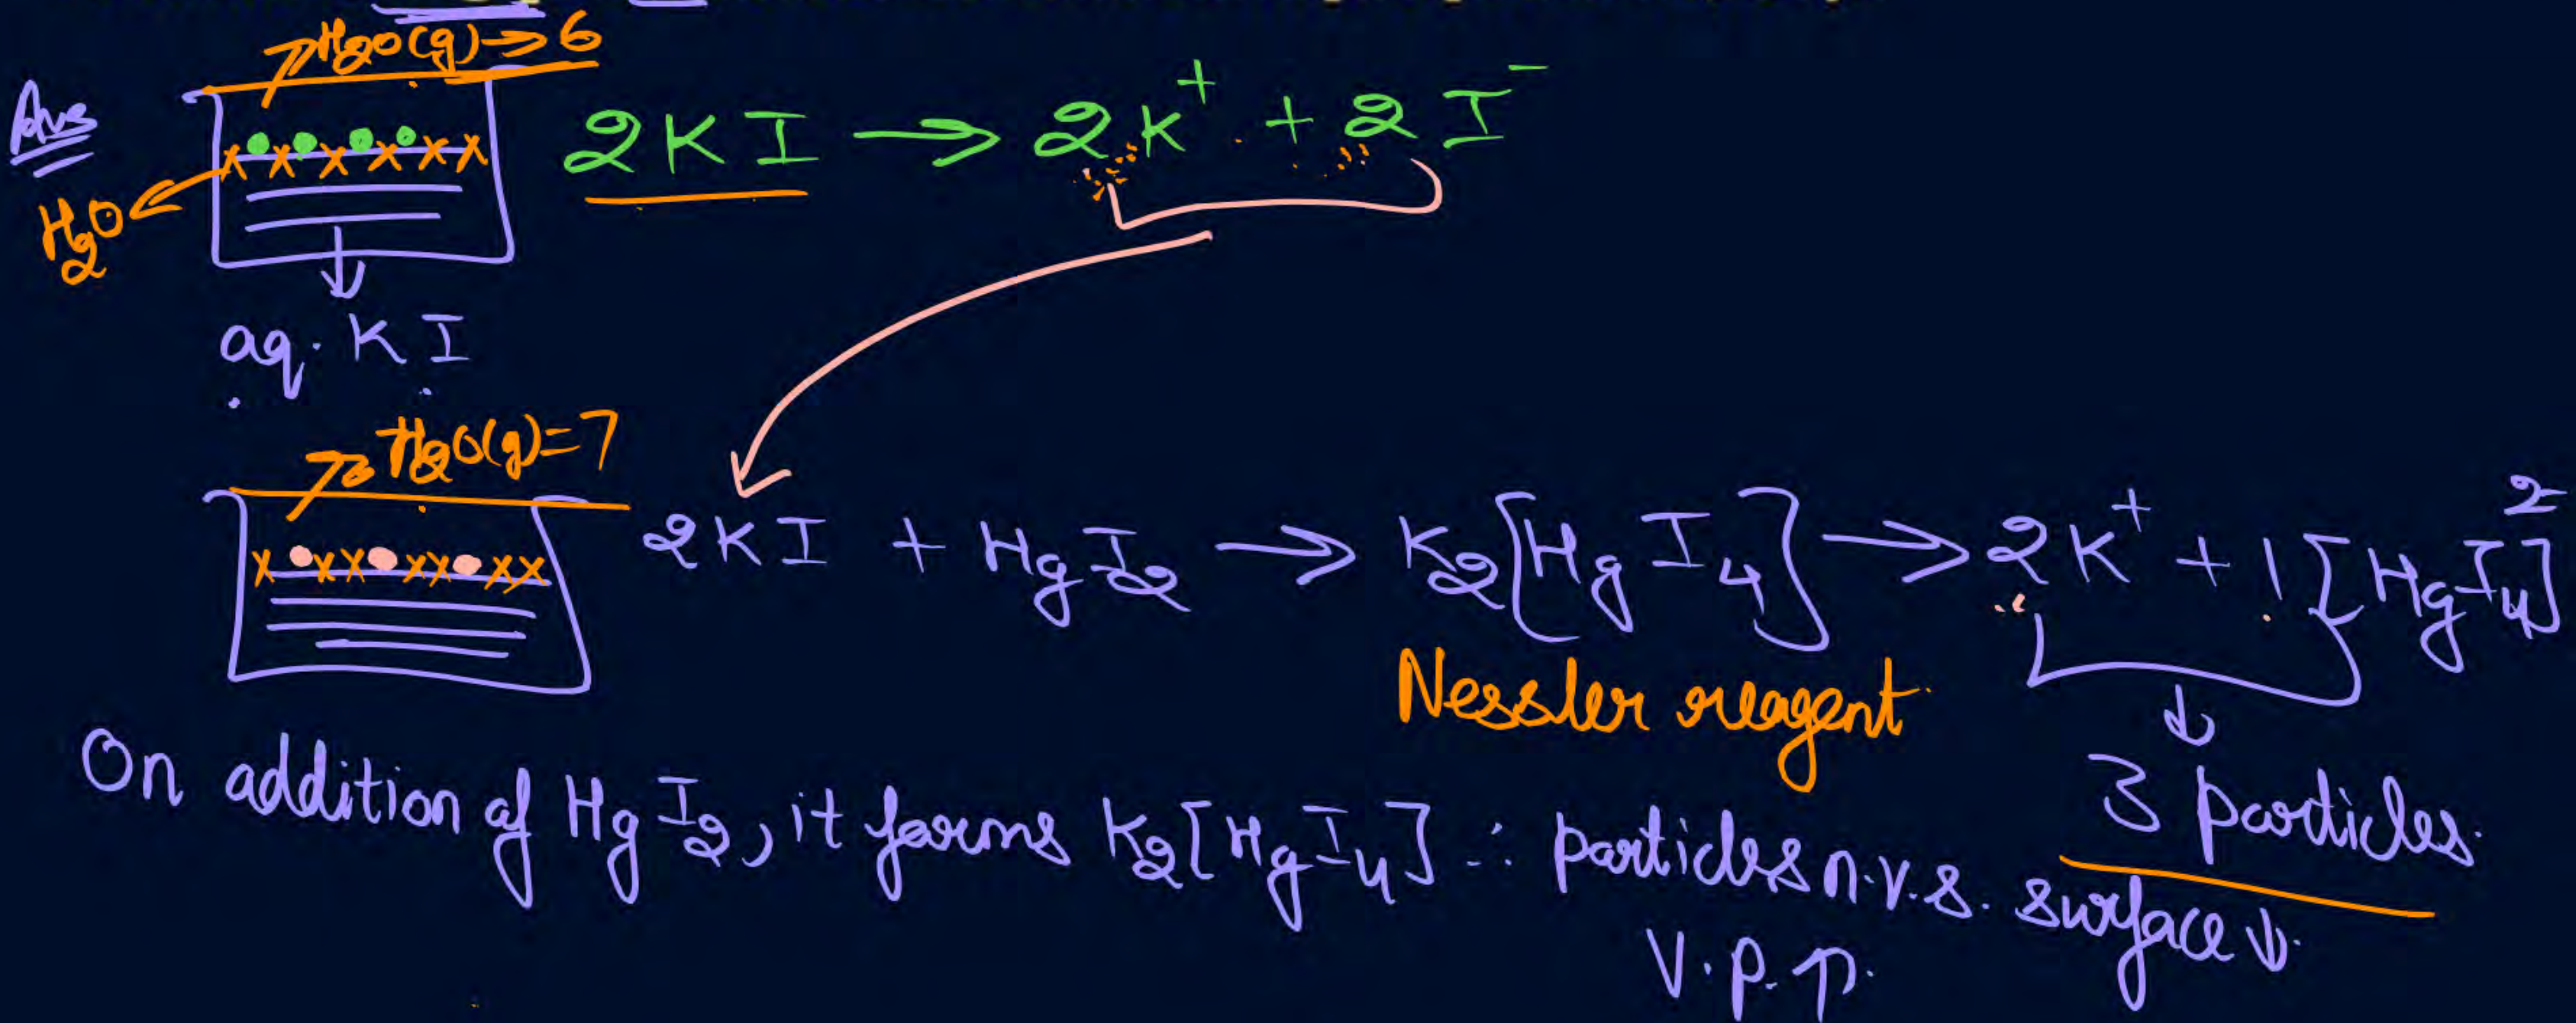 H2O(g) → 6
Ans
2KI → 2K⁺ + 2I⁻
H2O
aq. KI
H2O(g) = 7
2KI + HgI2 → K2[HgI4] → 2K⁺ + 1[HgI4]²⁻
Nessler reagent.
3 particles.
On addition of HgI2, it forms K2[HgI4] ∴ particles n.v.s. surface ↓.
V.p. ↑.